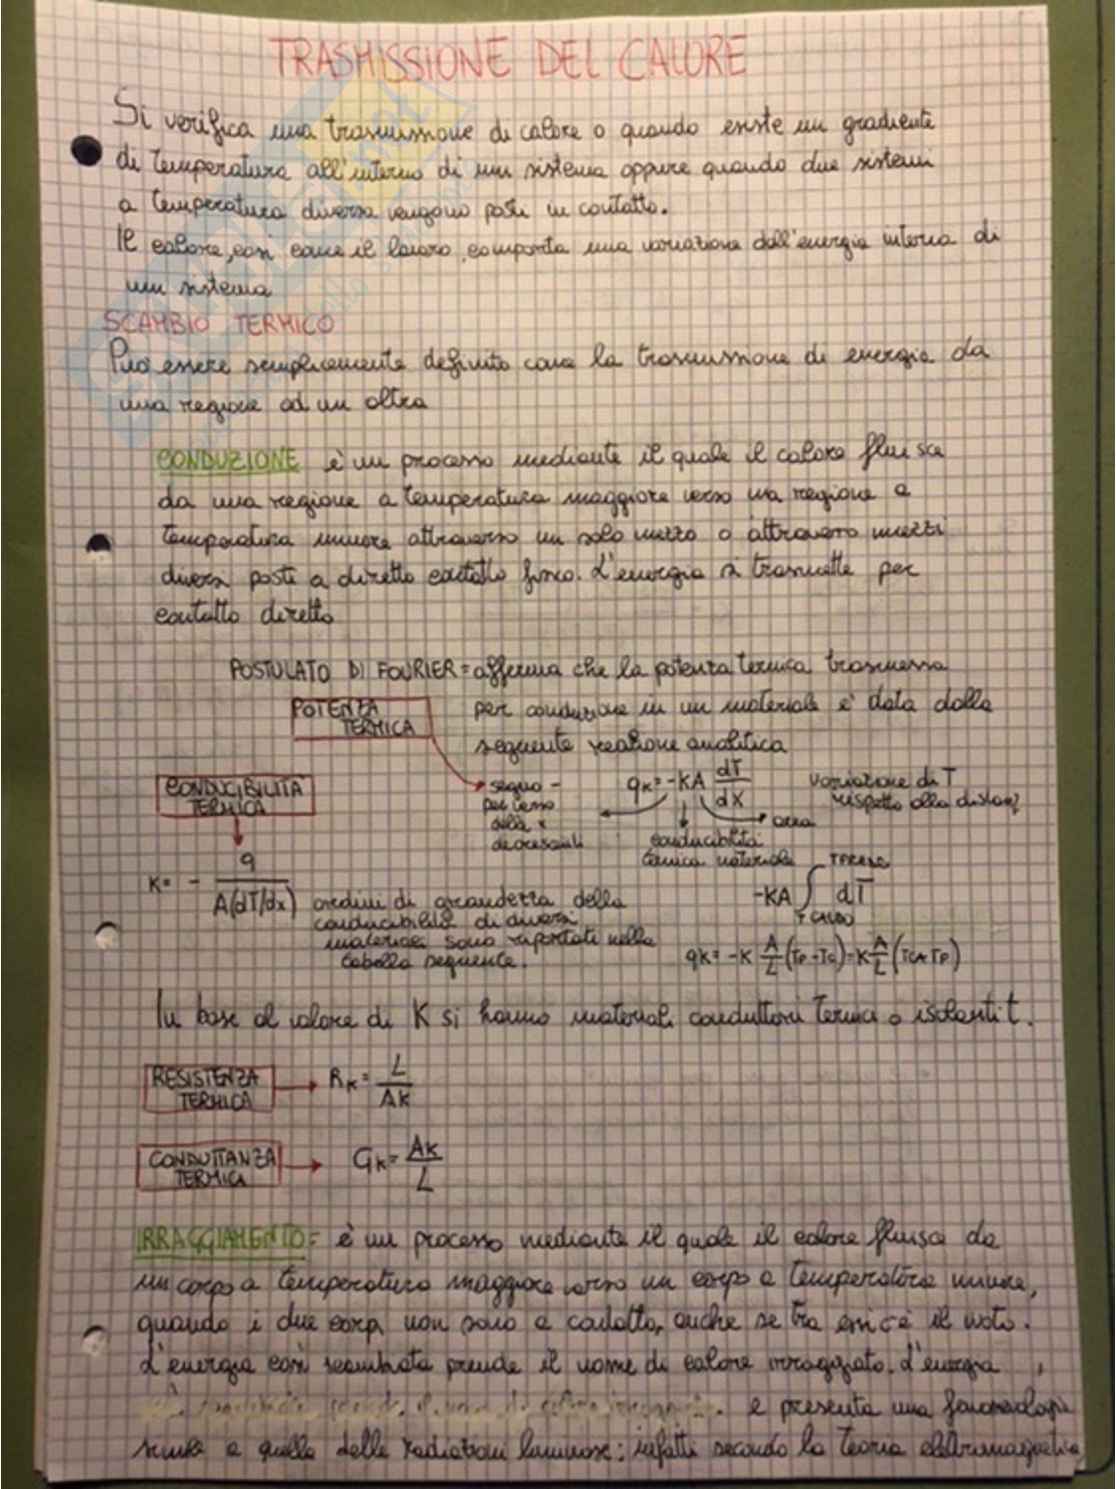 TRASMISSIONE DEL CALORE
Si verifica una trasmissione di calore o quando esiste un gradiente
di temperatura all'interno di un sistema oppure quando due sistemi
a temperatura diversa vengono posti in contatto.
Il calore, così come il lavoro, comporta una variazione dell'energia interna di
un sistema
SCAMBIO TERMICO
Può essere semplicemente definito come la trasmissione di energia da
una regione ad un altra
CONDUZIONE è un processo mediante il quale il calore fluisce
da una regione a temperatura maggiore verso una regione a
temperatura minore attraverso un solo mezzo o attraverso mezzi
diversi posti a diretto contatto fisico. L'energia si trasmette per
contatto diretto
POSTULATO DI FOURIER = afferma che la potenza termica trasmessa
POTENZA
TERMICA
per conduzione in un materiale è data dalla
seguente relazione analitica
CONDUCIBILITÀ
TERMICA
segno -
per
della x
decrescenti
qk = -KA dT/dX
variazione di T
rispetto alla distanz
area
conducibilità
termica materiale
K = - q / A(dT/dx)
ordini di grandezza della
conducibilità di diversi
materiali sono riportati nella
tabella sequente.
-KA ∫ dT
T CALDO
qk = -K A/L (TF - TC) = K A/L (TC - TF)
In base al valore di K si hanno materiali conduttori termici o isolanti t.
RESISTENZA
TERMICA
RK = L / AK
CONDUTTANZA
TERMICA
GK = AK / L
IRRAGGIAMENTO = è un processo mediante il quale il calore fluisce da
un corpo a temperatura maggiore verso un corpo a temperatura minore,
quando i due corpi non sono a contatto, anche se tra essi c'è il vuoto.
L'energia così scambiata prende il nome di calore irraggiato. L'energia
e presenta una fenomenologia
simile a quella delle radiazioni luminose: infatti secondo la teoria elettromagnetica